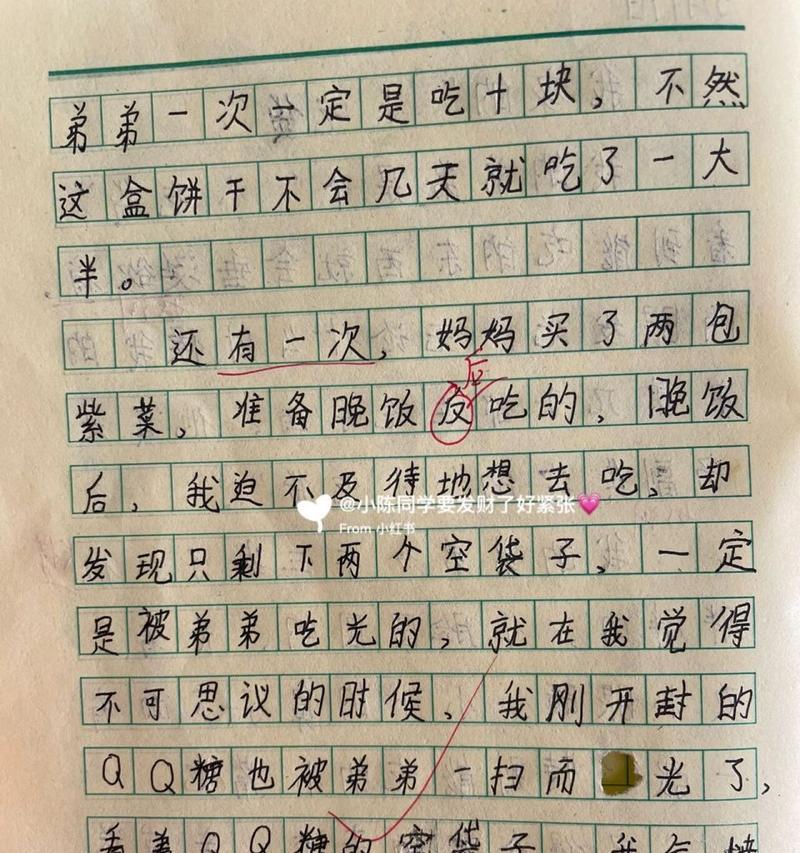 弟弟一次一定是吃十块，不然
这盒饼干不会几天就吃了一大
半。
还有一次，妈妈买了两包
后
紫菜，准备晚饭反吃的，晚饭
后，我迫不及待地想去吃，却
@小陈同学要发财了好紧张💗
From 小红书
发现只剩下两个空袋子，一定
是被弟弟吃光的，就在我觉得
不可思议的时候，我刚开封的
QQ糖也被弟弟一扫而光了，
看着QQ糖的空袋子，我气愤